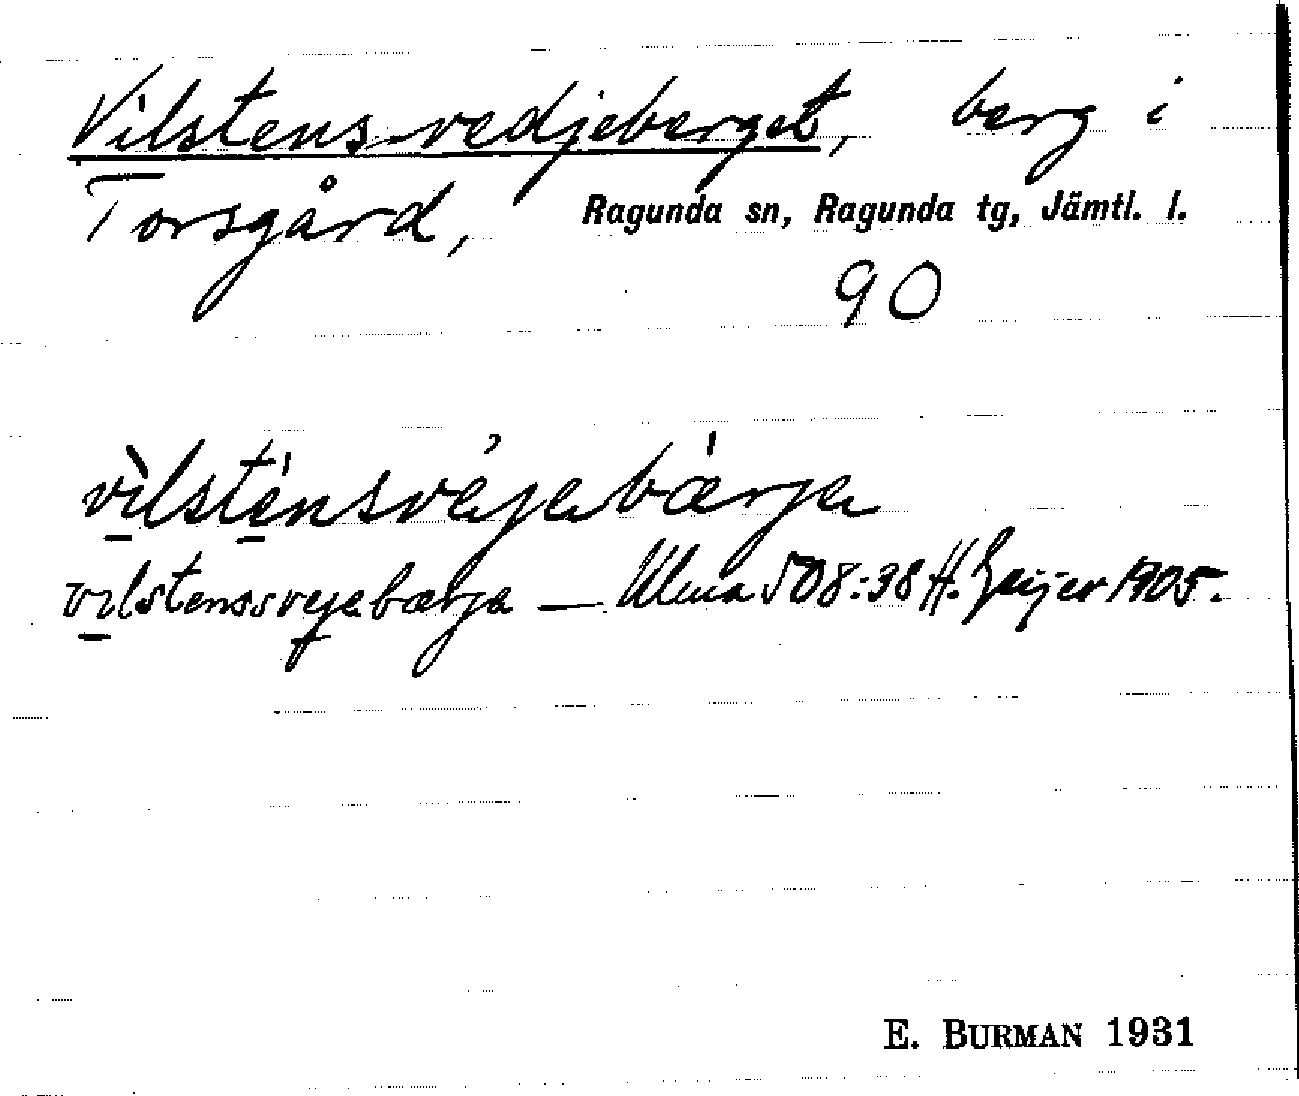 Vilstensvedjeberget, berg i
Torsgård, Ragunda sn, Ragunda tg, Jämtl. l.
90
vìlsténsvéjabǽrja
vilstenssvejebærja — Ulma 508:38 H. Geijer 1905.
E. BURMAN 1931